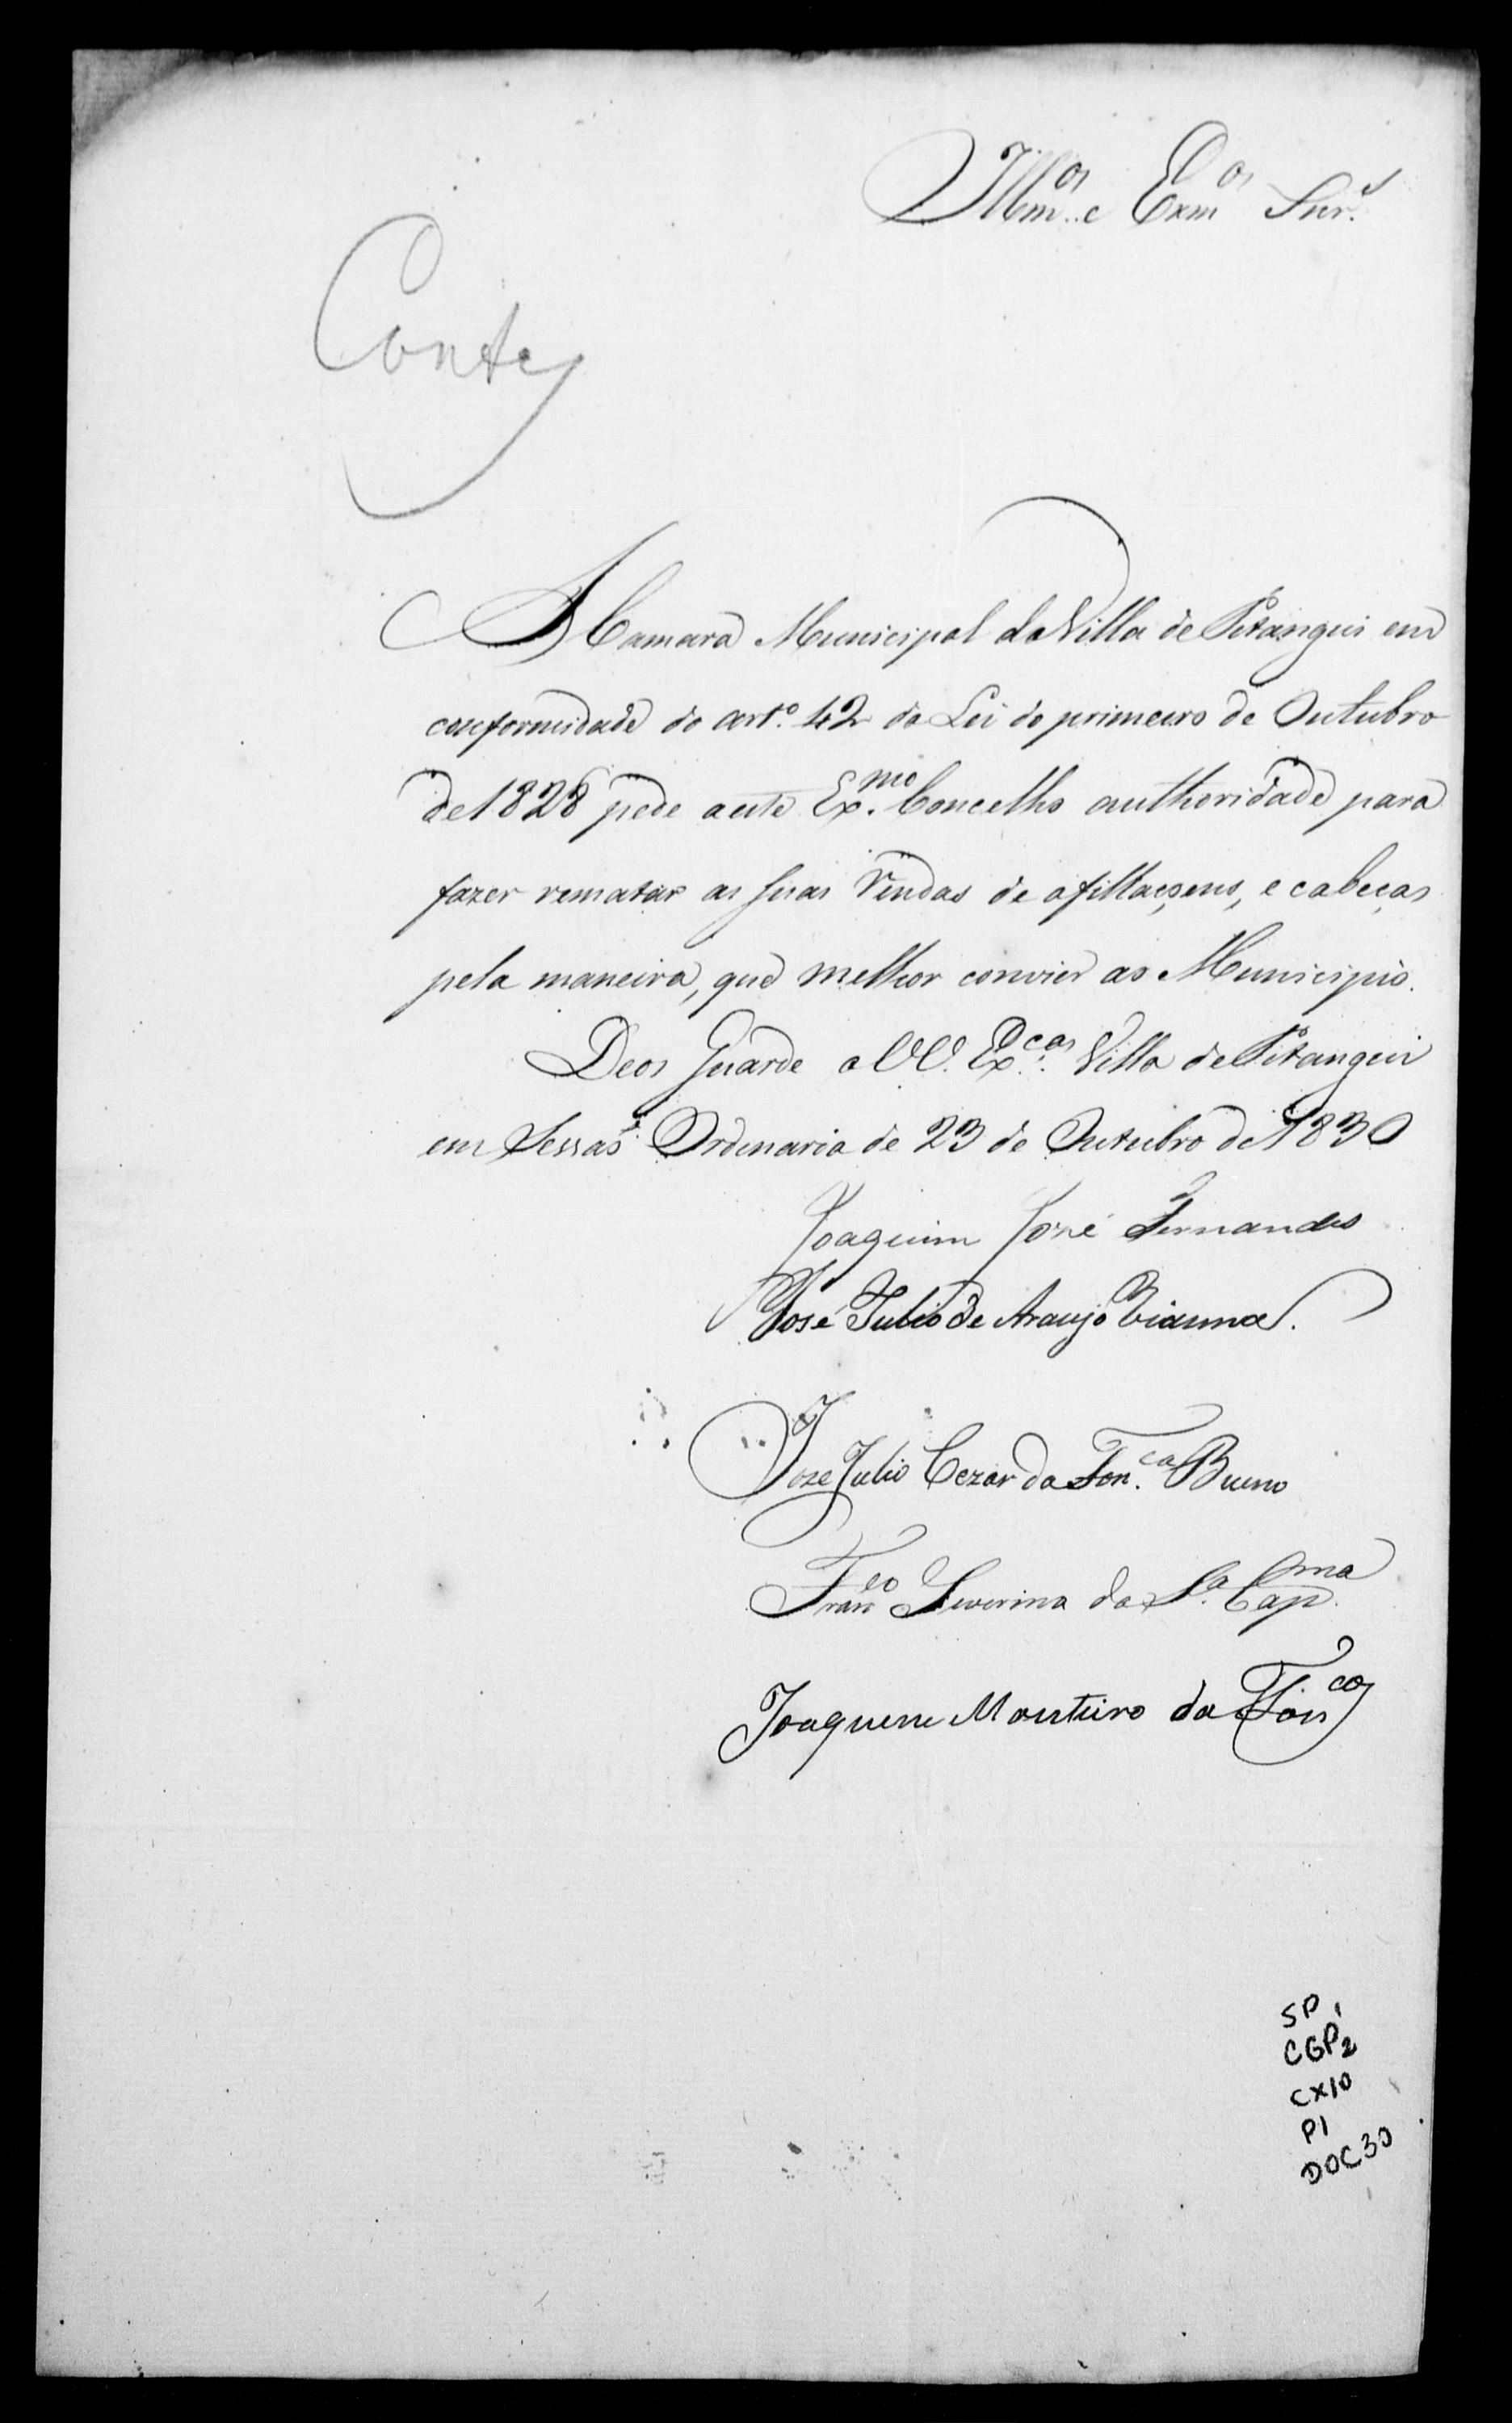 Illm.os e Exm.os Snr.s
Contas
A Camara Municipal da Villa de Pitangui em
conformidade do art.º 42 da Lei do primeiro de Outubro
de 1828 pede a este Ex.mo Concelho authoridade para
fazer rematar as suas Rendas de afillaçoens, e cabeças
pela maneira, que melhor convier ao Municipio.
Deos Guarde a VV. Ex.cas Villa de Pitangui
em Sessaõ Ordinaria de 23 de Outubro de 1830
Joaquim José Fernandes
José Julio de Araujo Vianna.
Joze Julio Cezar da Fon.ca Bueno
Fran.co Severino da S.a Cap.
Joaquim Monteiro da Fon.ca
SP1
CGP2
CX10
P1
DOC30